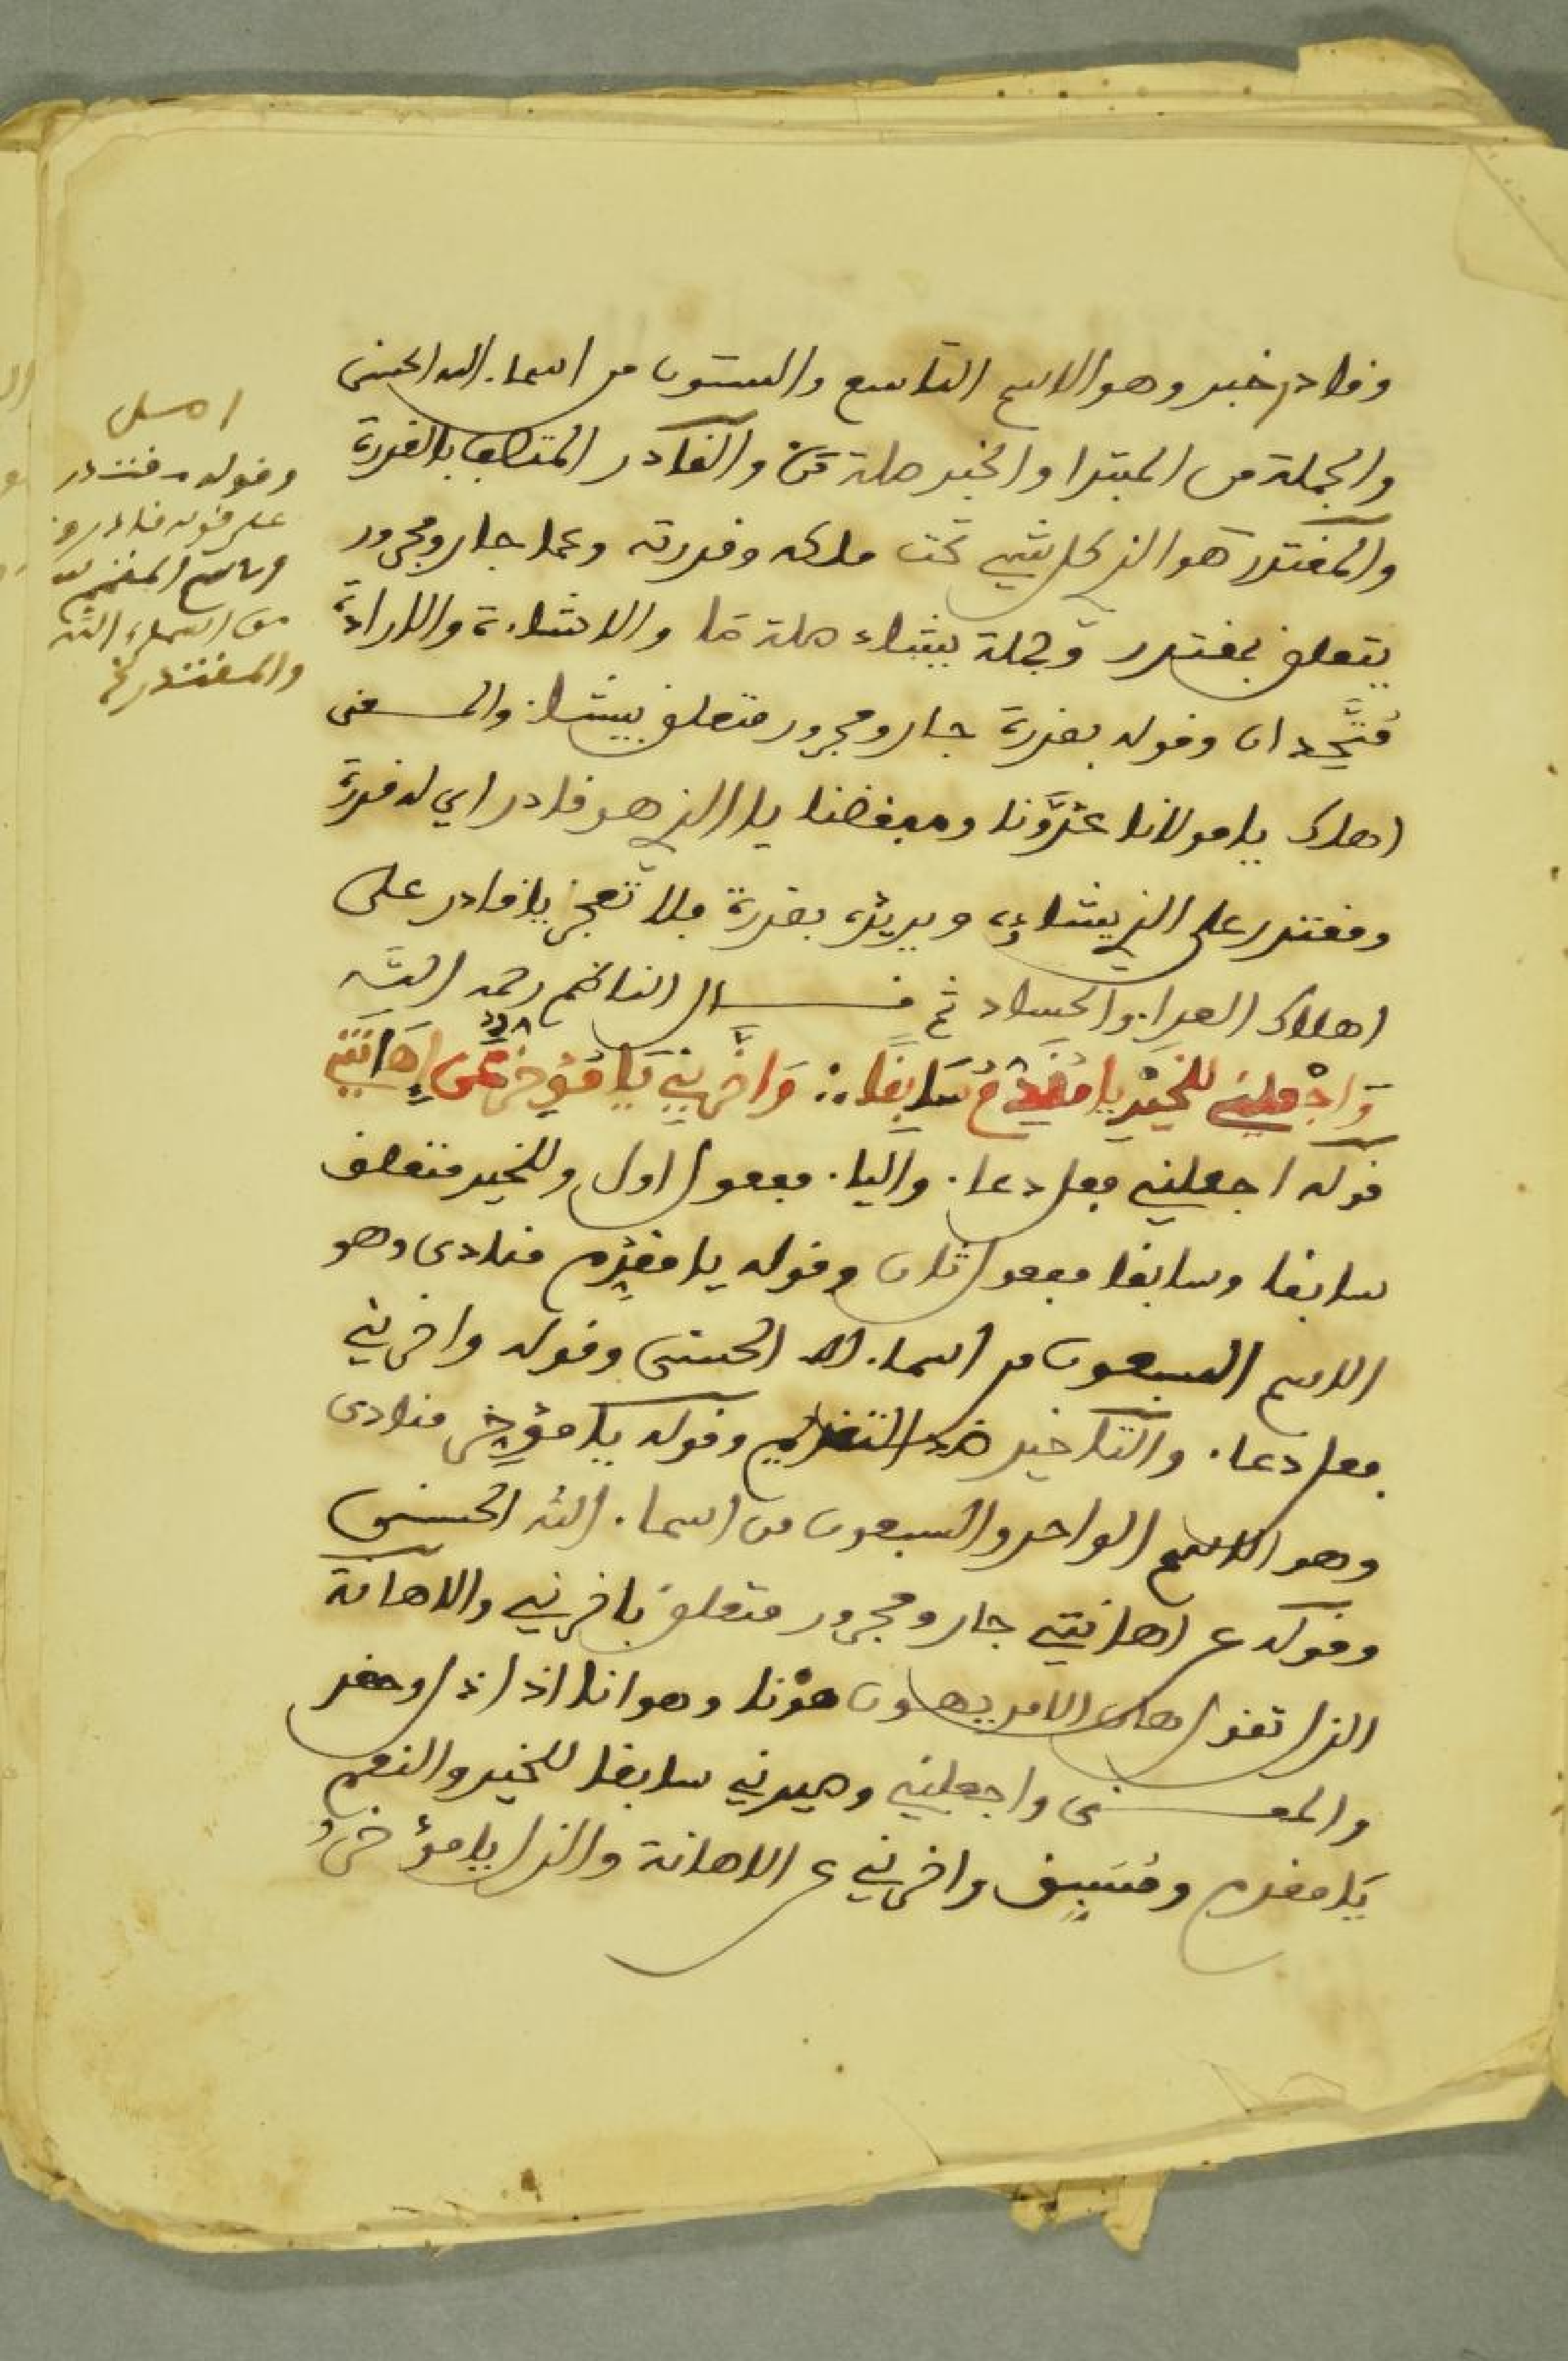 وقادر خبر وهو الاسم التاسع والستون من اسماء الله الحسنى
والجملة من المبتدا والخبر صلة من والقادر المتصف بالقدرة
والمقتدر هو الذي كل شيء تحت ملكه وقدرته وعما جار ومجرور
يتعلق بمقتدر وجملة يشاء صلة ما والاشاءة والارادة
مُتَّحِدان وقوله بقدرة جار ومجرور متعلق بيشاء والمعنى
اهلك يا مولانا عدوَّنا ومبغضنا يا الذي هو قادر اي له قدرة
ومقتدر على الذي يشاءه ويريده بقدرة فلا تعجز يا قادر على
اهلاك العداء والحساد ثم قال الناظم رحمه الله
وَاجْعلني للخيْرِ يا مُقَدِّمُ سَابِقًا وَاخِّرنِي يَا مُؤَخِّرُ عَن اِهَانَتِي
قوله اجعلني فعل دعاء والياء مفعول اول وللخير متعلق
سابقا وسابقا مفعول ثان وقوله يا مقدم منادى وهو
الاسم السبعون من اسماء الله الحسنى وقوله واخرني
فعل دعاء والتاخير ضد التقديم وقوله يا مؤخر منادى
وهو الاسم الواحد والسبعون من اسماء الله الحسنى
وقوله عن اهانتي جار ومجرور متعلق باخرني والاهانة
الذل تقول هان الامر يهون هوْنا وهوانا اذا ذل وحقر
والمعنى واجعلني وصيرني سابقا للخير والنعم
يَا مقدم ومُسَبِق واخرني عن الاهانة والذل يا مؤخرُ
وقوله مقتدر
على قوله قادر
من اسماء الله
والمقتدر